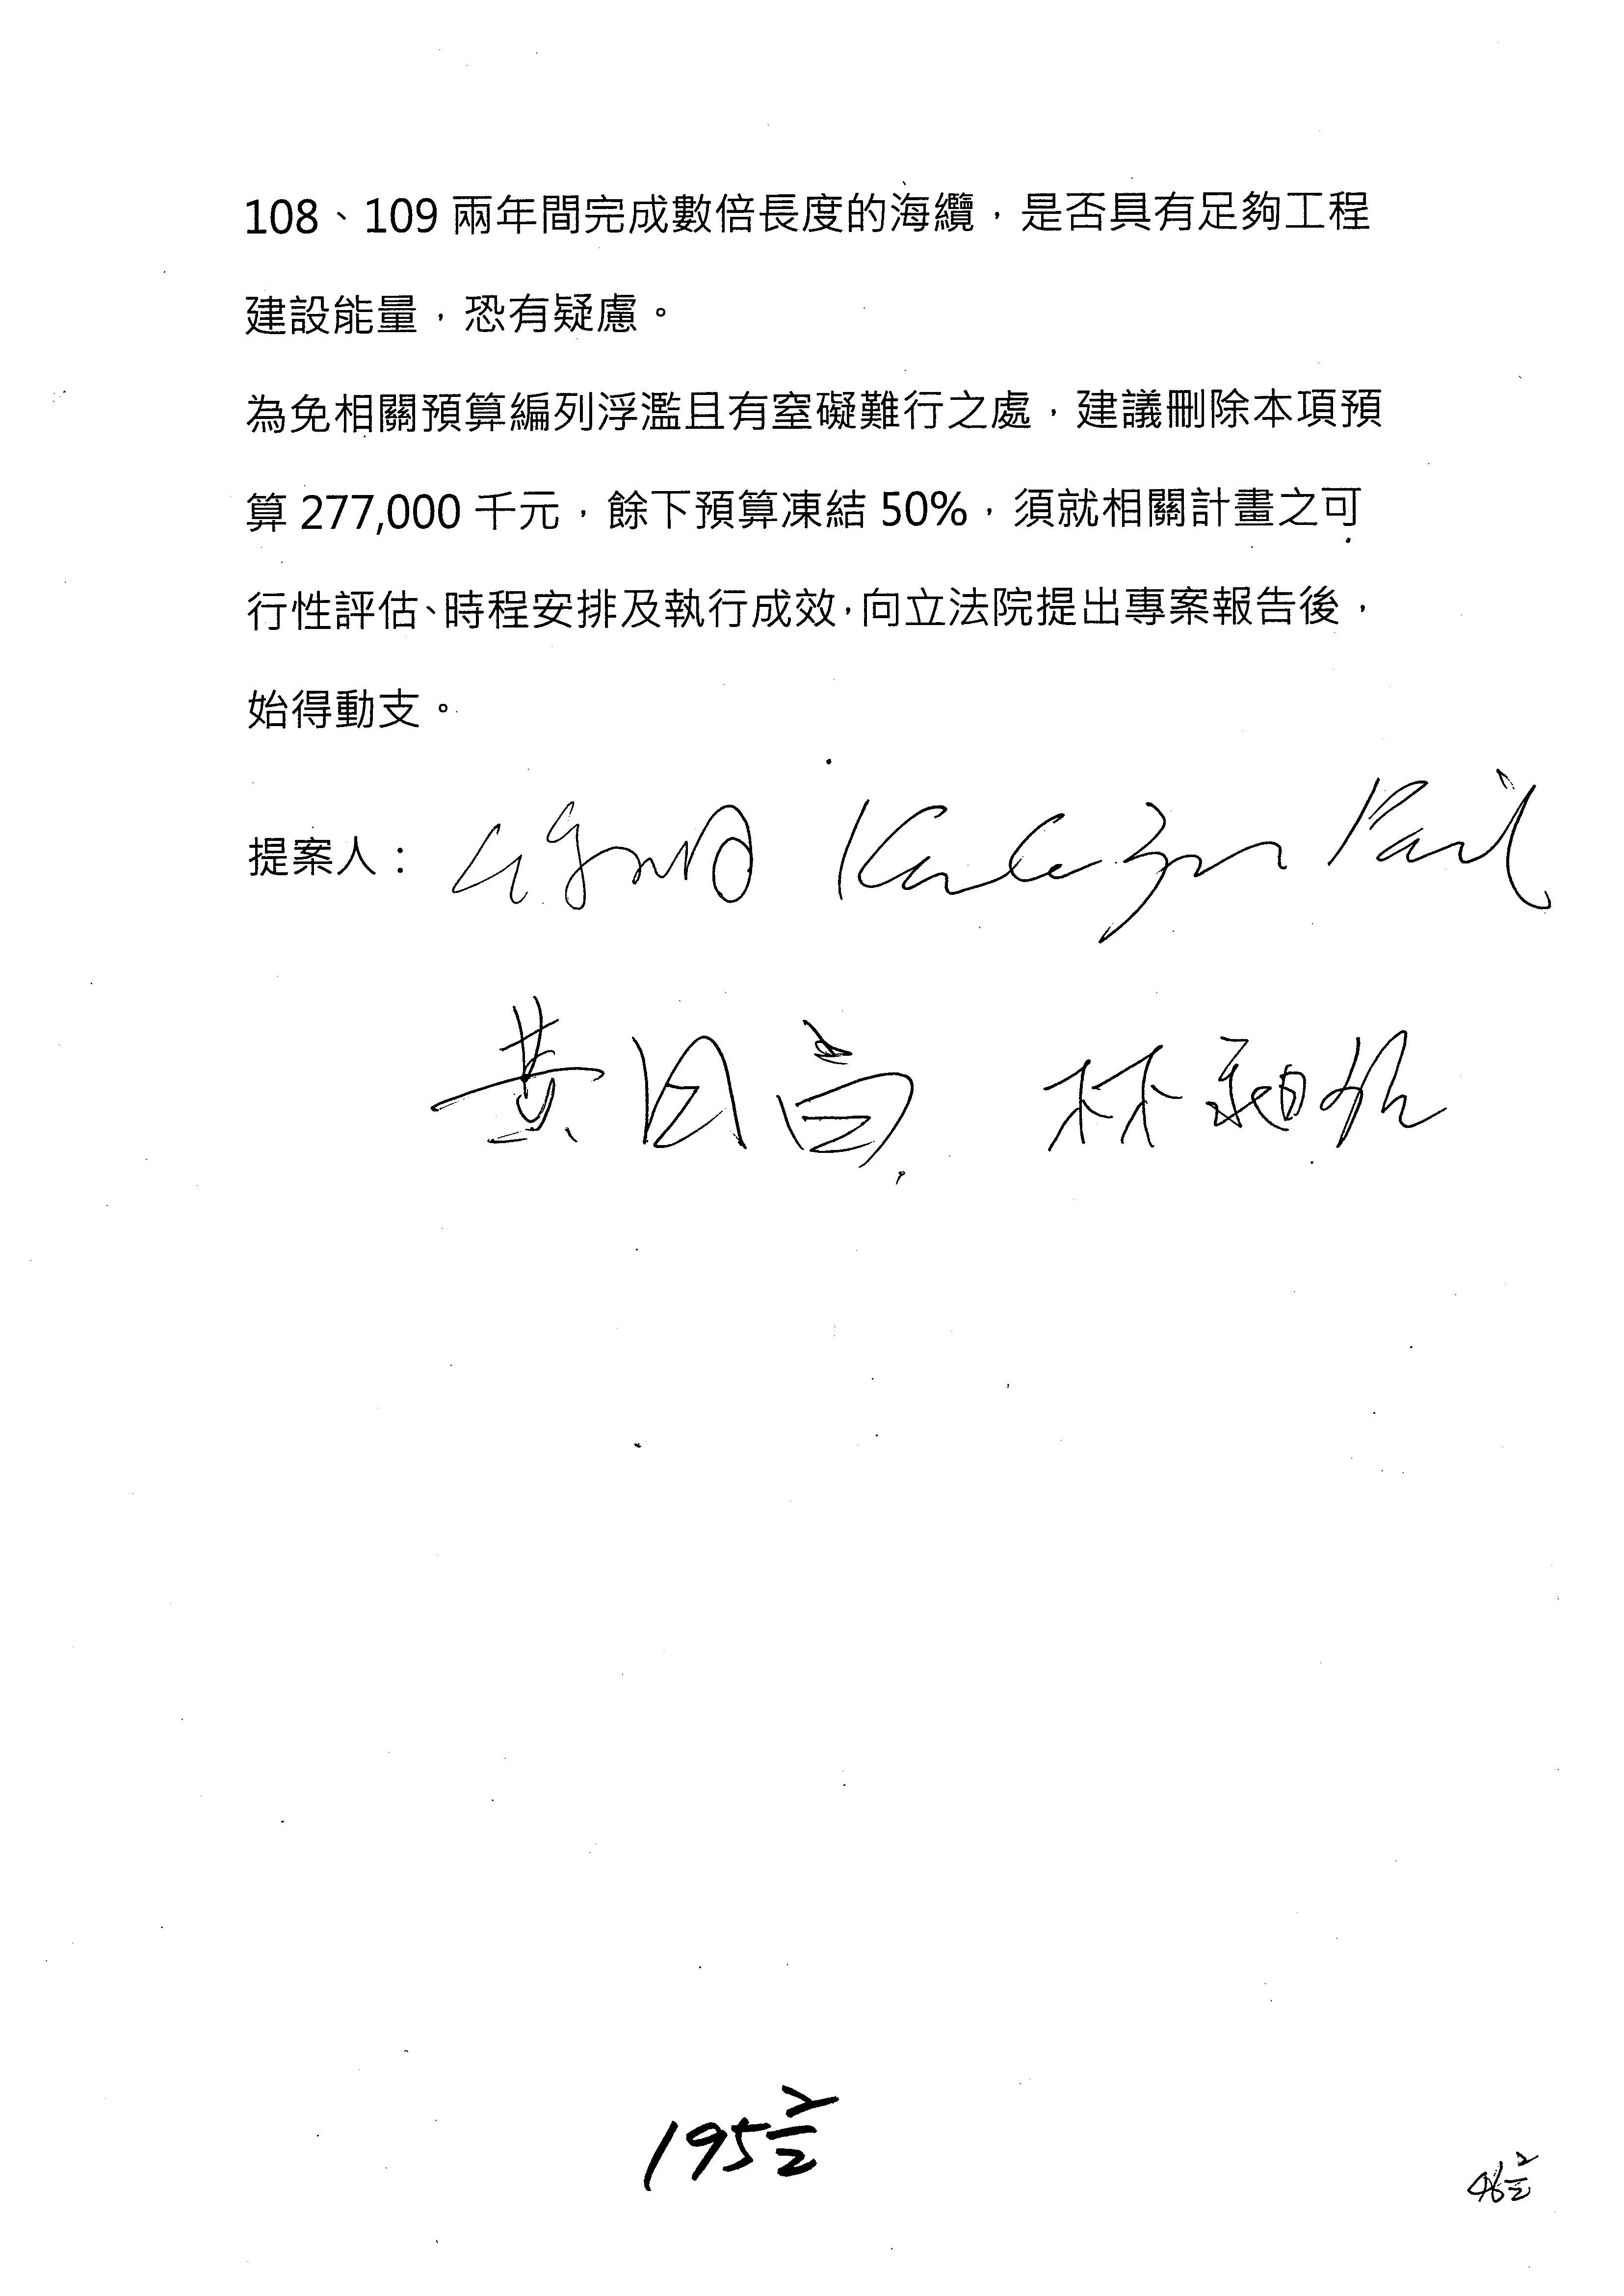 108、109 兩年間完成數倍長度的海纜，是否具有足夠工程
建設能量，恐有疑慮。
為免相關預算編列浮濫且有窒礙難行之處，建議刪除本項預
算 277,000 千元，餘下預算凍結 50%，須就相關計畫之可
行性評估、時程安排及執行成效，向立法院提出專案報告後，
始得動支。
提案人：
黃國昌 林昶佐
195 2/2
46 2/2